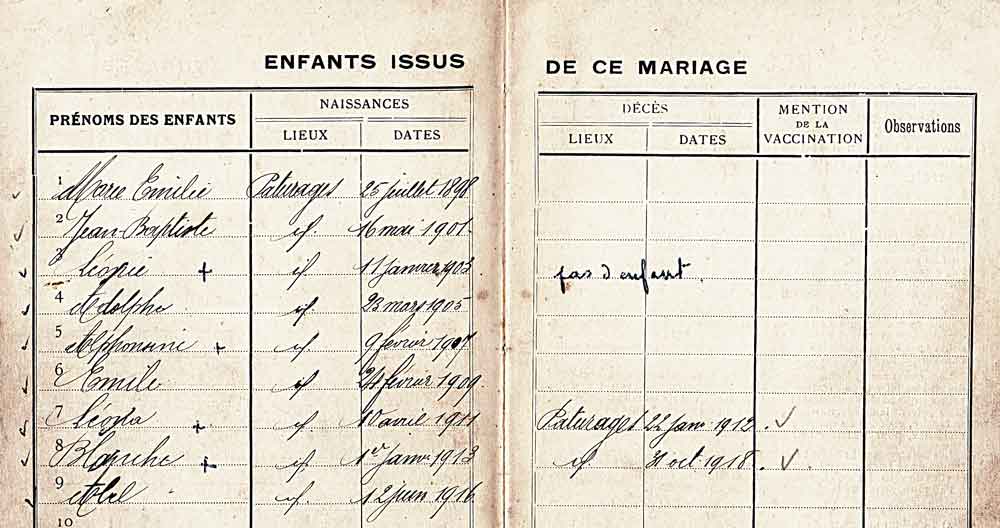 ENFANTS ISSUS DE CE MARIAGE
PRÉNOMS DES ENFANTS NAISSANCES DÉCÈS MENTION DE LA VACCINATION Observations
LIEUX DATES LIEUX DATES
1 Marie Emilie Paturages 25 juillet 1898
2 Jean-Baptiste id. 16 mai 1901.
3 Léonie + id. 11 janvier 1903 pas d'enfant.
4 Adolphe id. 23 mars 1905
5 Alphonsine + id. 9 février 1907
6 Emile id. 24 février 1909.
7 Léona + id. 10 avril 1911 Paturages 22 janv 1912.
8 Blanche + id. 1er janv 1913 id. 31 oct 1918.
9 Abel id. 12 juin 1916
10